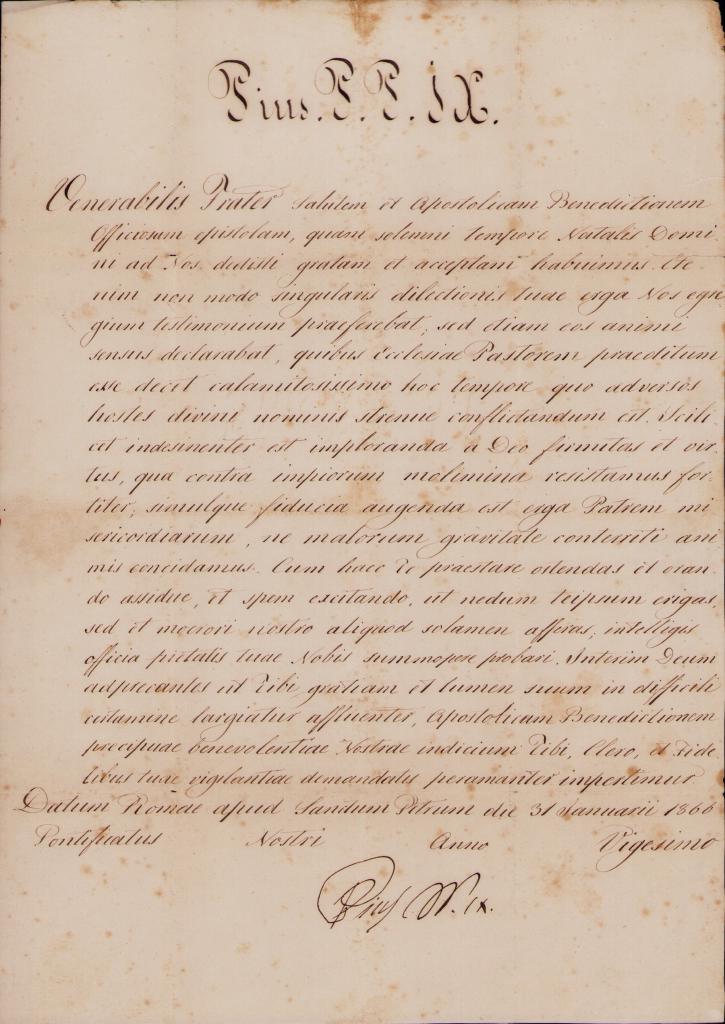 Pius. P. P. IX.
Venerabilis Frater Salutem et Apostolicam Benedictionem
Officiosam epistolam, quam solemni tempore Natalis Domi
ni ad Nos dedisti gratam et acceptam habuimus. Ete
nim non modo singularis dilectionis tuae erga Nos egre
gium testimonium praeferebat, sed etiam eos animi
sensus declarabat, quibus Ecclesiae Pastorem praeditum
esse decet calamitosissimo hoc tempore quo adversos
hostes divini nominis strenue conflictandum est. Scili
cet indesinenter est imploranda a Deo firmitas et vir
tus, qua contra impiorum molimina resistamus for
titer, simulque fiducia augenda est erga Patrem mi
sericordiarum, ne malorum gravitate conterriti ani
mis concidamus. Cum haec Te praestare ostendas et oran
do assidue, et spem excitando, ut nedum teipsum erigas,
sed et moerori nostro aliquod solamen afferas, intelligis
officia pietatis tuae Nobis summopere probari. Interim Deum
adprecantes ut Tibi gratiam et lumen suum in difficili
certamine largiatur affluenter, Apostolicam Benedictionem
precipuae benevolentiae Nostrae indicium Tibi, Clero, et Fide
libus tuae vigilantiae demandatis peramanter impertimur
Datum Romae apud Sanctum Petrum die 31 Januarii 1866
Pontificatus Nostri Anno Vigesimo
Pius PP. IX.